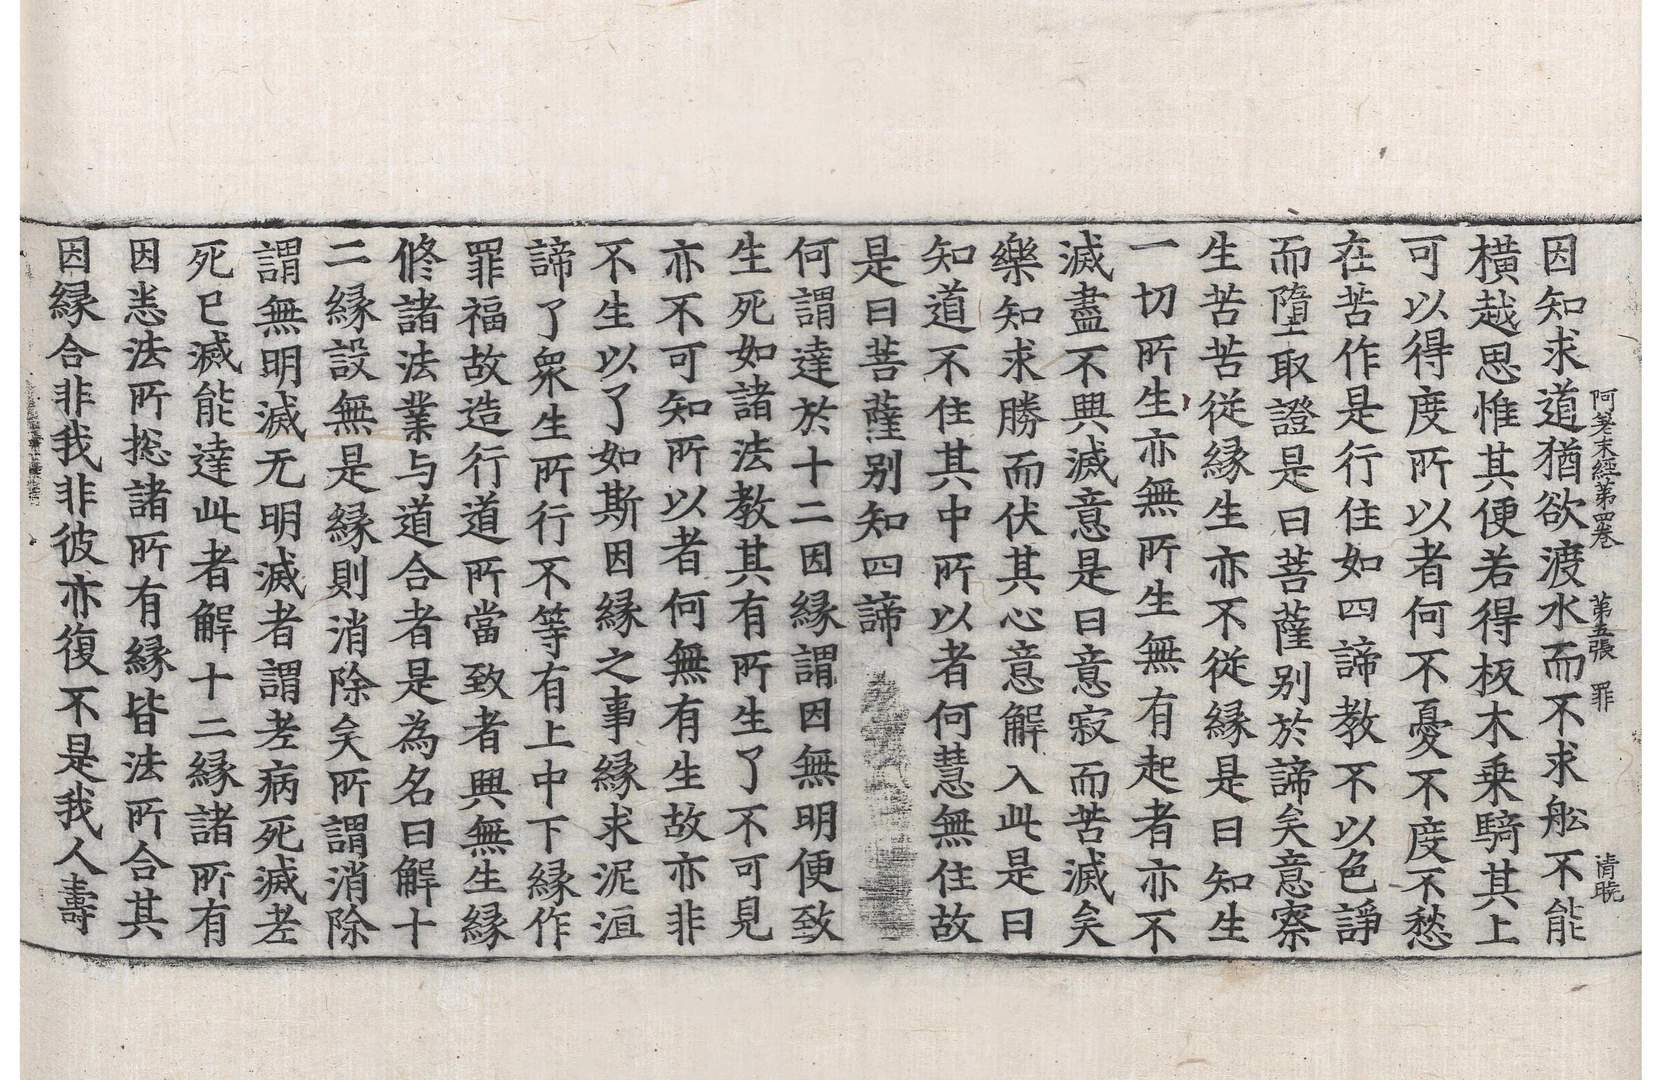 阿差末經第四卷　第五張　罪　清曉
因知求道猶欲渡水而不求舩不能
橫越思惟其便若得板木乗騎其上
可以得度所以者何不憂不度不愁
在苦作是行住如四諦教不以色諍
而墮取證是曰菩薩别於諦矣意察
生苦苦從縁生亦不從縁是曰知生
一切所生亦無所生無有起者亦不
滅盡不興滅意是曰意寂而苦滅矣
樂知求勝而伏其心意解入此是曰
知道不住其中所以者何慧無住故
是曰菩薩别知四諦
何謂達於十二因縁謂因無明便致
生死如諸法教其有所生了不可見
亦不可知所以者何無有生故亦非
不生以了如斯因縁之事縁求泥洹
諦了衆生所行不等有上中下縁作
罪福故造行道所當致者興無生縁
修諸法業与道合者是為名曰解十
二縁設無是縁則消除矣所謂消除
謂無明滅无明滅者謂老病死滅老
死已滅能達此者解十二縁諸所有
因恙法所揔諸所有縁皆法所合其
因縁合非我非彼亦復不是我人壽